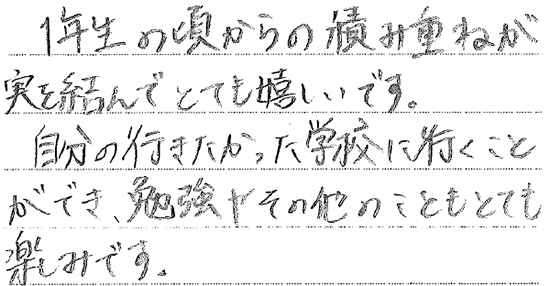 1年生の頃からの積み重ねが
実を結んでとても嬉しいです。
自分の行きたかった学校に行くこと
ができ、勉強やその他のこともとても
楽しみです。